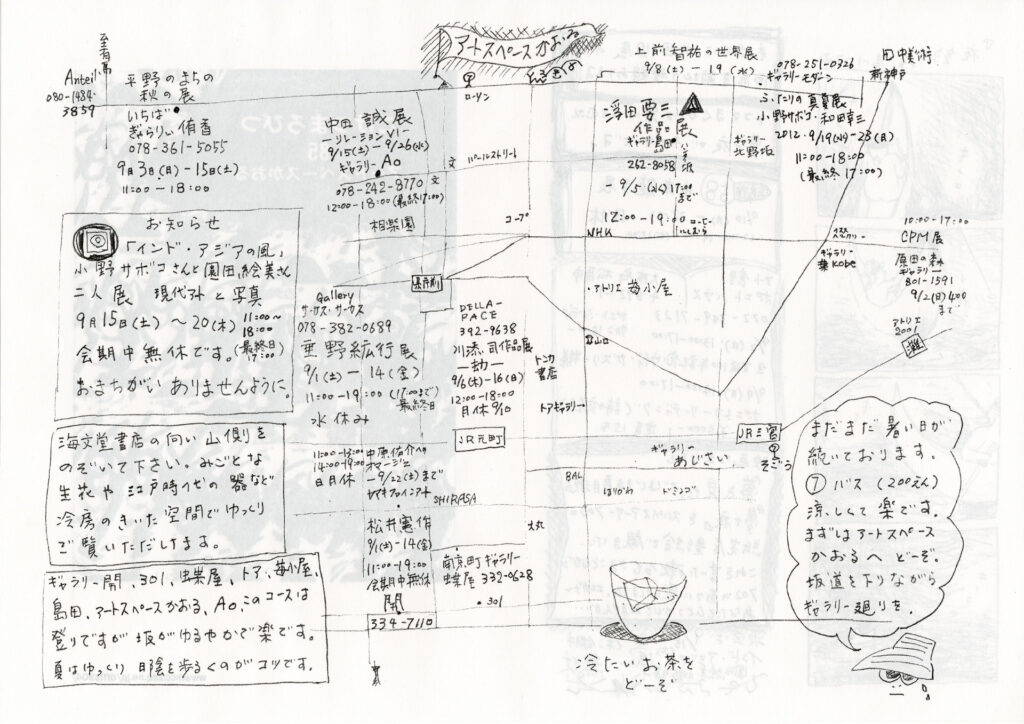 アートスペースかおる
Anteil
080-1484-
3859
平野のまちの
秋の展
いちば
ぎゃらりぃ侑香
078-361-5055
9月3日(日)-15日(土)
11:00~18:00
ローソン
中田誠展
-リレーションVI-
9/15(土)~9/26(水)
ギャラリーAo
078-242-8770
12:00-18:00(最終17:00)
文
文
パールストリート
相楽園
上前智祐の世界展
9/8(土)-19(水)
078-251-0326
ギャラリーモダーン
田中美術
新神戸
浮田要三
作品展
ギャラリー島田
262-8058
ハンター坂
-9/5(水)17:00
まで
12:00-19:00
ギャラリー
北野坂
ふたりの真夏展
小野サボコ・和田幸三
2012・9/19(水)-23(日)
11:00-18:00
(最終17:00)
コープ
NHK
10:00-17:00
CPM展
原田の森
ギャラリー
801-1591
9/2(日)4:00
まで
ギャラリー
葉Kobe
アトリエ
2001
灘
お知らせ
「インド・アジアの風」
小野サボコさんと園田絵美さん
二人展 現代外と写真
9月15日(土)~20(木)
11:00~
18:00
会期中無休です。
(最終日
17:00)
おまちがいありませんように。
県庁前
・アトリエ苺小屋
Gallery
サーカス・サーカス
078-382-0689
垂野紘行展
9/1(土)-14(金)
11:00-19:00
(17:00まで)
最終日
水休み
DELLA-
PACE
392-9638
川添司作品展
-劫-
9/6(木)-16(日)
12:00-18:00
月休 9/10
トンカ
書店
トアギャラリー
JR元町
JR三宮
そごう
ギャラリー
あじさい
BAL
海文堂書店の向い山側を
のぞいて下さい。みごとな
生花や江戸時代の器など
冷房のきいた空間でゆっくり
ご覧いただけます。
11:00-13:00
14:00-19:00
日月休
中原佑介への
オマージュ
-9/22(土)まで
SHIRASA
松井憲作
9/1(土)-14(金)
11:00-19:00
会期中無休
開
334-7110
大丸
南京町ギャラリー
蝶屋 332-0628
・301
ギャラリー開、301、蝶屋、トア、苺小屋、
島田、アートスペースかおる、Ao、このコースは
登りですが坂がゆるやかで楽です。
夏はゆっくり日陰を歩くのがコツです。
冷たいお茶を
どーぞ
まだまだ暑い日が
続いております。
⑦バス(200えん)
涼しくて楽です。
まずはアートスペース
かおるへどーぞ。
坂道を下りながら
ギャラリー廻りを。